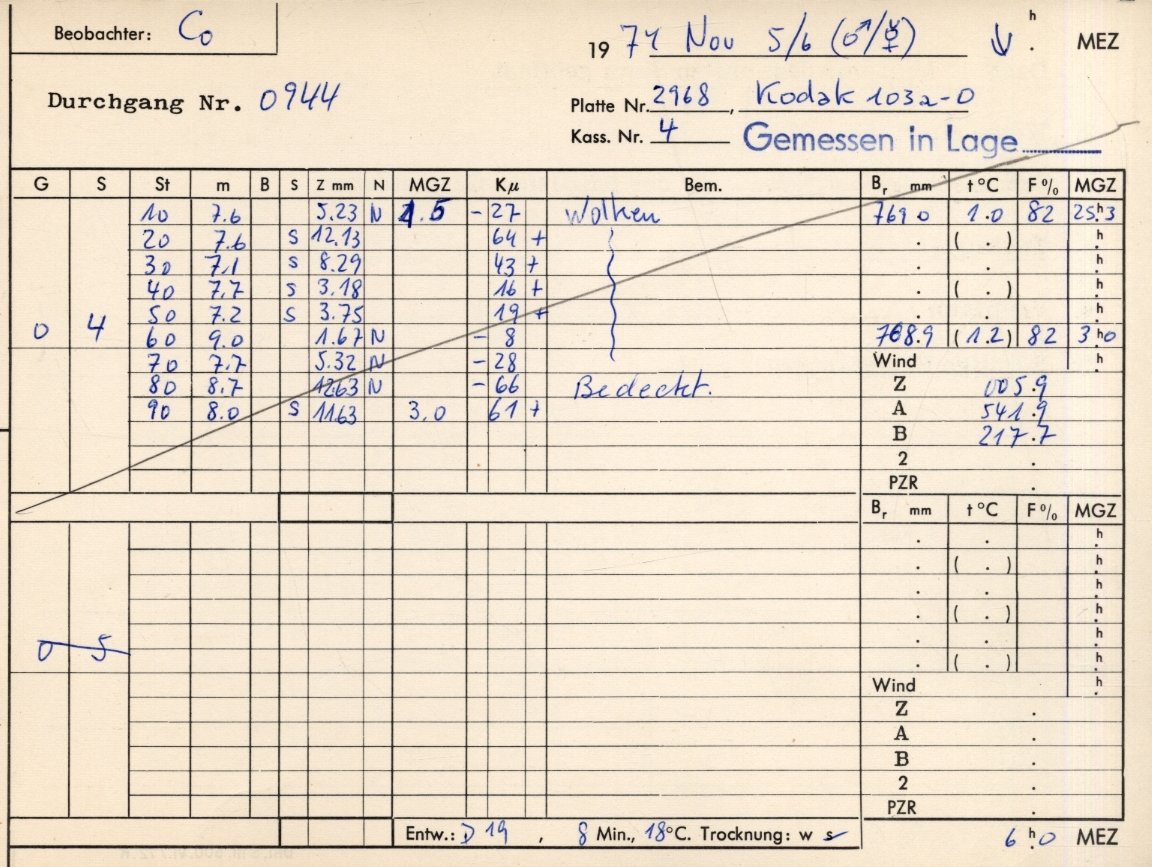 Beobachter: Co
19 74 Nov 5/6 (♂/☿) ↓ h . MEZ
Durchgang Nr. 0944
Platte Nr. 2968, Kodak 103a-O
Kass. Nr. 4 Gemessen in Lage
G S St m B S Z mm N MGZ Kμ Bem. Br mm t °C F % MGZ
10 7.6 5.23 N 1.5 - 27 Wolken 769 0 1.0 82 25h.3
20 7.6 S 12.13 64 + . ( . ) h .
30 7.1 S 8.29 43 + . . h .
40 7.7 S 3.18 16 + . ( . ) h .
50 7.2 S 3.75 19 + . . h .
0 4 60 9.0 1.67 N - 8 768.9 (1.2) 82 3h.0
70 7.7 5.32 N - 28 Wind h .
80 8.7 12.63 N - 66 Bedeckt. Z 005.9
90 8.0 S 11.63 3.0 61 + A 541.9
B 217.7
2 .
PZR .
Br mm t °C F % MGZ
. . h .
. ( . ) h .
. . h .
. ( . ) h .
0 5 . . h .
. ( . ) h .
Wind h .
Z .
A .
B .
2 .
PZR .
Entw.: D 19 , 8 Min., 18°C. Trocknung: w s 6h.0 MEZ